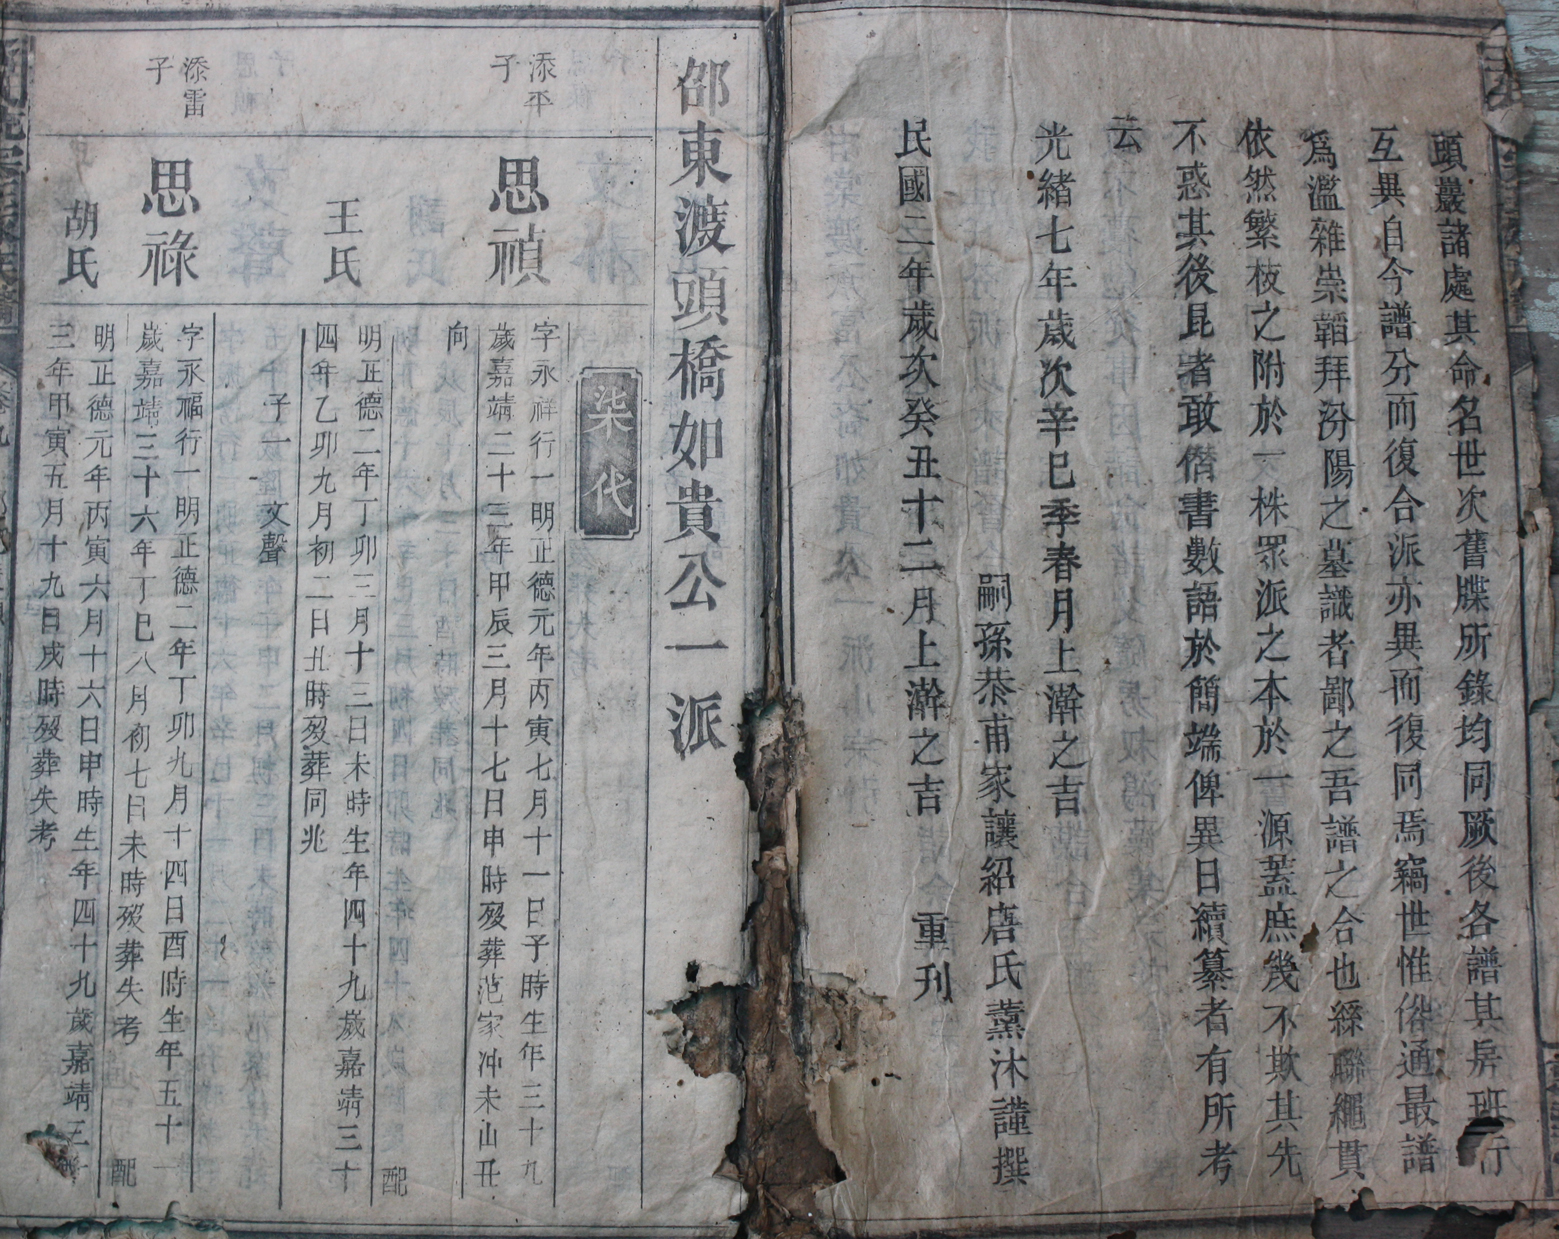 頭巖諸處其命名世次舊牒所錄均同厥後各譜其房班行
互異自今譜分而復合派亦異而復同焉竊世惟俗通最譜
爲濫雜崇韜拜汾陽之墓識者鄙之吾譜之合也繇聯繩貫
依然繁枝之附於一株眾派之本於一源蓋庶幾不欺其先
不惑其後昆者敢僭書數語於簡端俾異日續纂者有所考
云
光緒七年歲次辛巳季春月上澣之吉
嗣孫恭甫家讓紹唐氏薰沐謹撰
民國二年歲次癸丑十二月上澣之吉 重刊
邵東渡頭橋如貴公一派
柒代
添平子
思禎
字永祥行一明正德元年丙寅七月十一日子時生年三十九
歲嘉靖二十三年甲辰三月十七日申時歿葬范家沖未山丑
向
配
王氏
明正德二年丁卯三月十三日未時生年四十九歲嘉靖三十
四年乙卯九月初二日丑時歿葬同兆
子一 文聲
添雷子
思祿
字永福行一明正德二年丁卯九月十四日酉時生年五十一
歲嘉靖三十六年丁巳八月初七日未時歿葬失考
配
胡氏
明正德元年丙寅六月十六日申時生年四十九歲嘉靖三十
三年甲寅五月十九日戌時歿葬失考